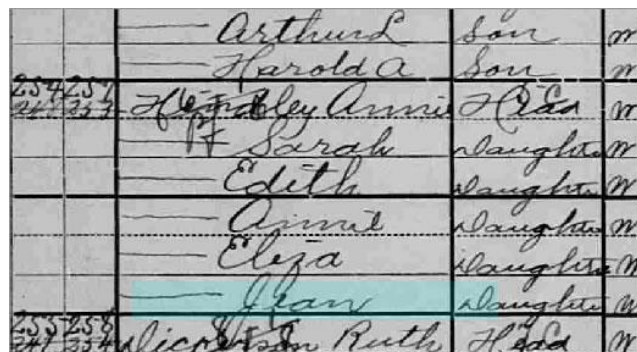 Arthur L Son W
Harold A Son W
254 257 Annie Head W
Sarah Daughter W
Edith Daughter W
Annie Daughter W
Eliza Daughter W
Jean Daughter W
255 258 Ruth Head W